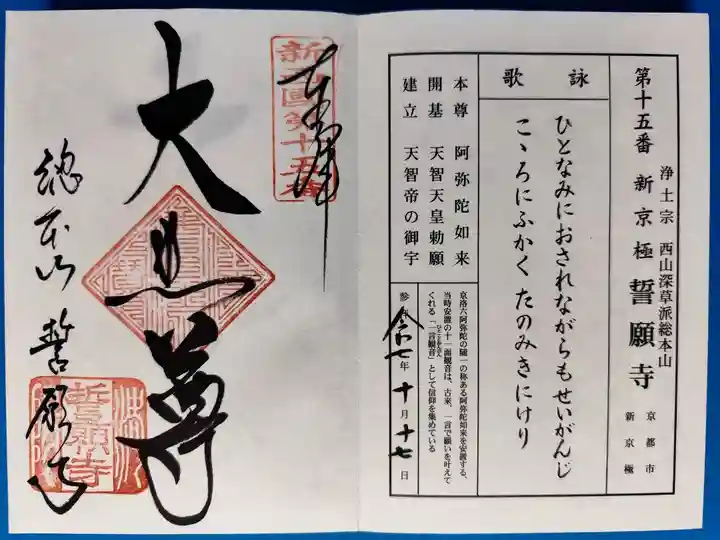 第十五番 新京極 誓願寺 京都市 新京極
浄土宗 西山深草派総本山
詠歌
ひとなみにおされながらもせいがんじ
こゝろにふかく たのみきにけり
本尊 阿弥陀如来
開基 天智天皇勅願
建立 天智帝の御宇
京洛六阿弥陀の随一の称ある阿弥陀如来を安置する。
当時安置の十一面観音は、古来、一言で願いを叶えて
くれる「一言観音」として信仰を集めている
ひとことかんのん
参拝 令七年十月十七日
奉拝
新西國第十五番
大悲尊
総本山 誓願寺
誓願寺